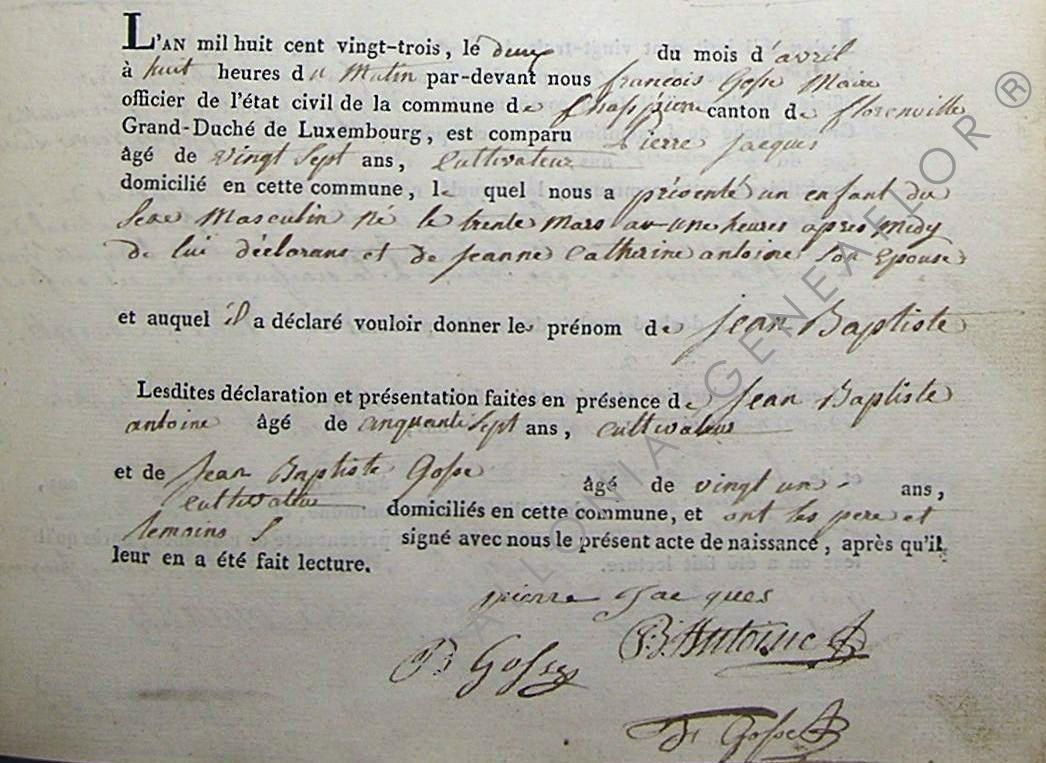 L'AN mil huit cent vingt-trois, lé deux du mois d'avril
à huit heures du Matin par-devant nous françois Gosse Maire
officier de l'état civil de la commune de canton de florenville
Grand-Duché de Luxembourg, est comparu Pierre Jacques
âgé de vingt Sept ans, Cultivateur
domicilié en cette commune, le quel nous a présenté un enfant du
Sexe Masculin né le trente Mars a une heures après midy
de lui déclarans et de Jeanne Catherine antoine Son Epouse
et auquel il a déclaré vouloir donner les prénom de Jean Baptiste
Lesdites déclaration et présentation faites en présence de Jean Baptiste
antoine âgé de cinquante Sept ans, cultivateur
et de Jean Baptiste Gosse âgé de vingt un ans,
cultivateur domiciliés en cette commune, et ont les pere et
temoins S signé avec nous le présent acte de naissance, après qu'il
leur en a été fait lecture.
pierre Jacques
B Antoine
B Gosse
f Gosse
WALLONIA GENEAFLOR ®